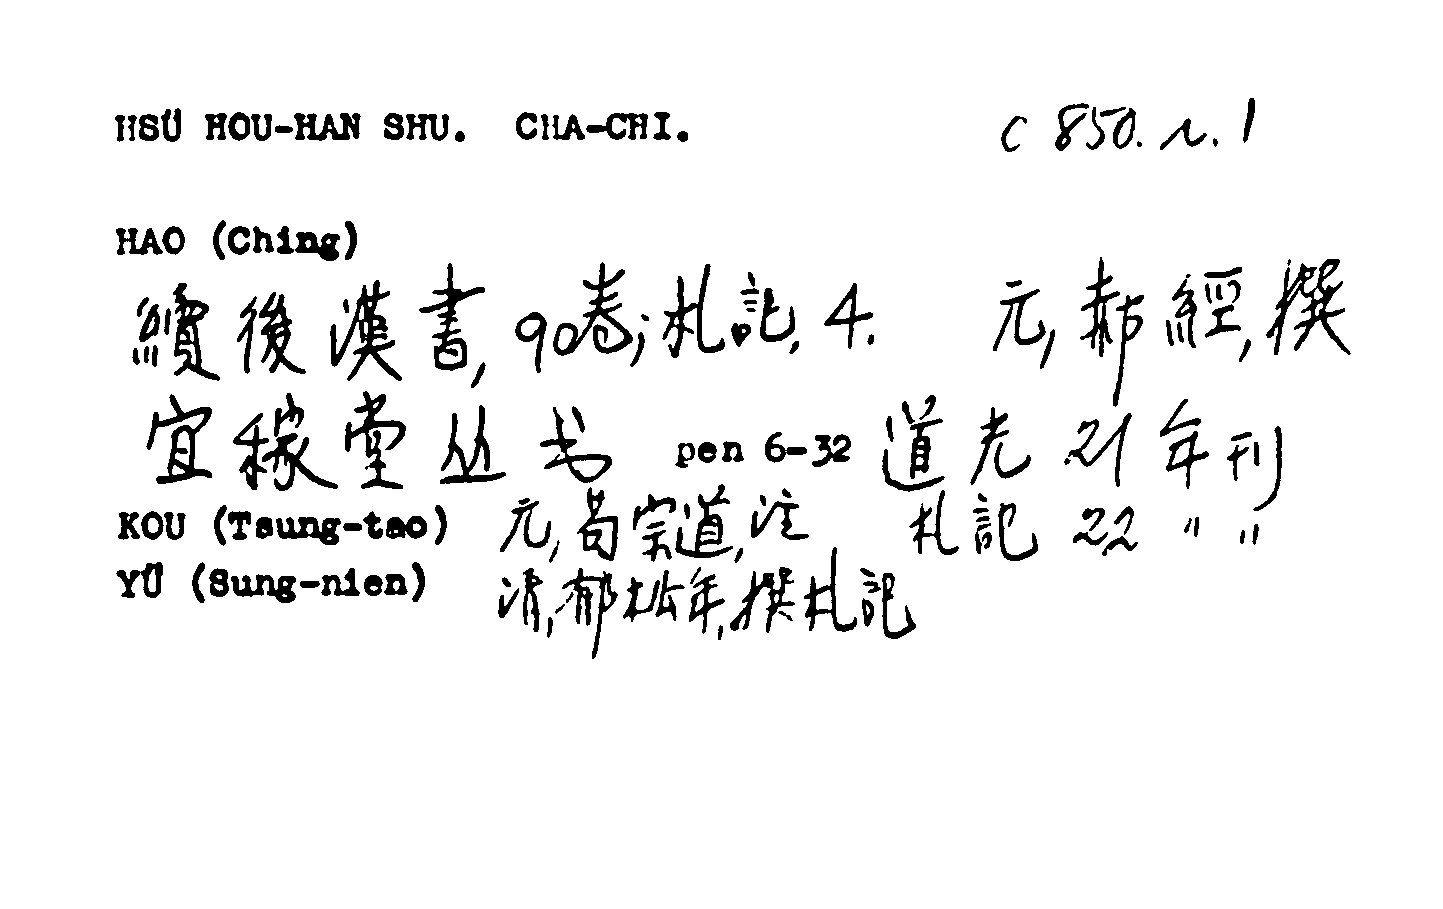 HSÜ HOU-HAN SHU. CHA-CHI. C 850. n. 1
HAO (Ching)
續後漢書, 90卷; 札記, 4. 元, 郝經, 撰
宜稼堂丛书 pen 6-32 道光 21 年刊
KOU (Tsung-tao) 元, 苟宗道, 注 札記 22 " "
YÜ (Sung-nien) 清, 郁松年, 撰札記